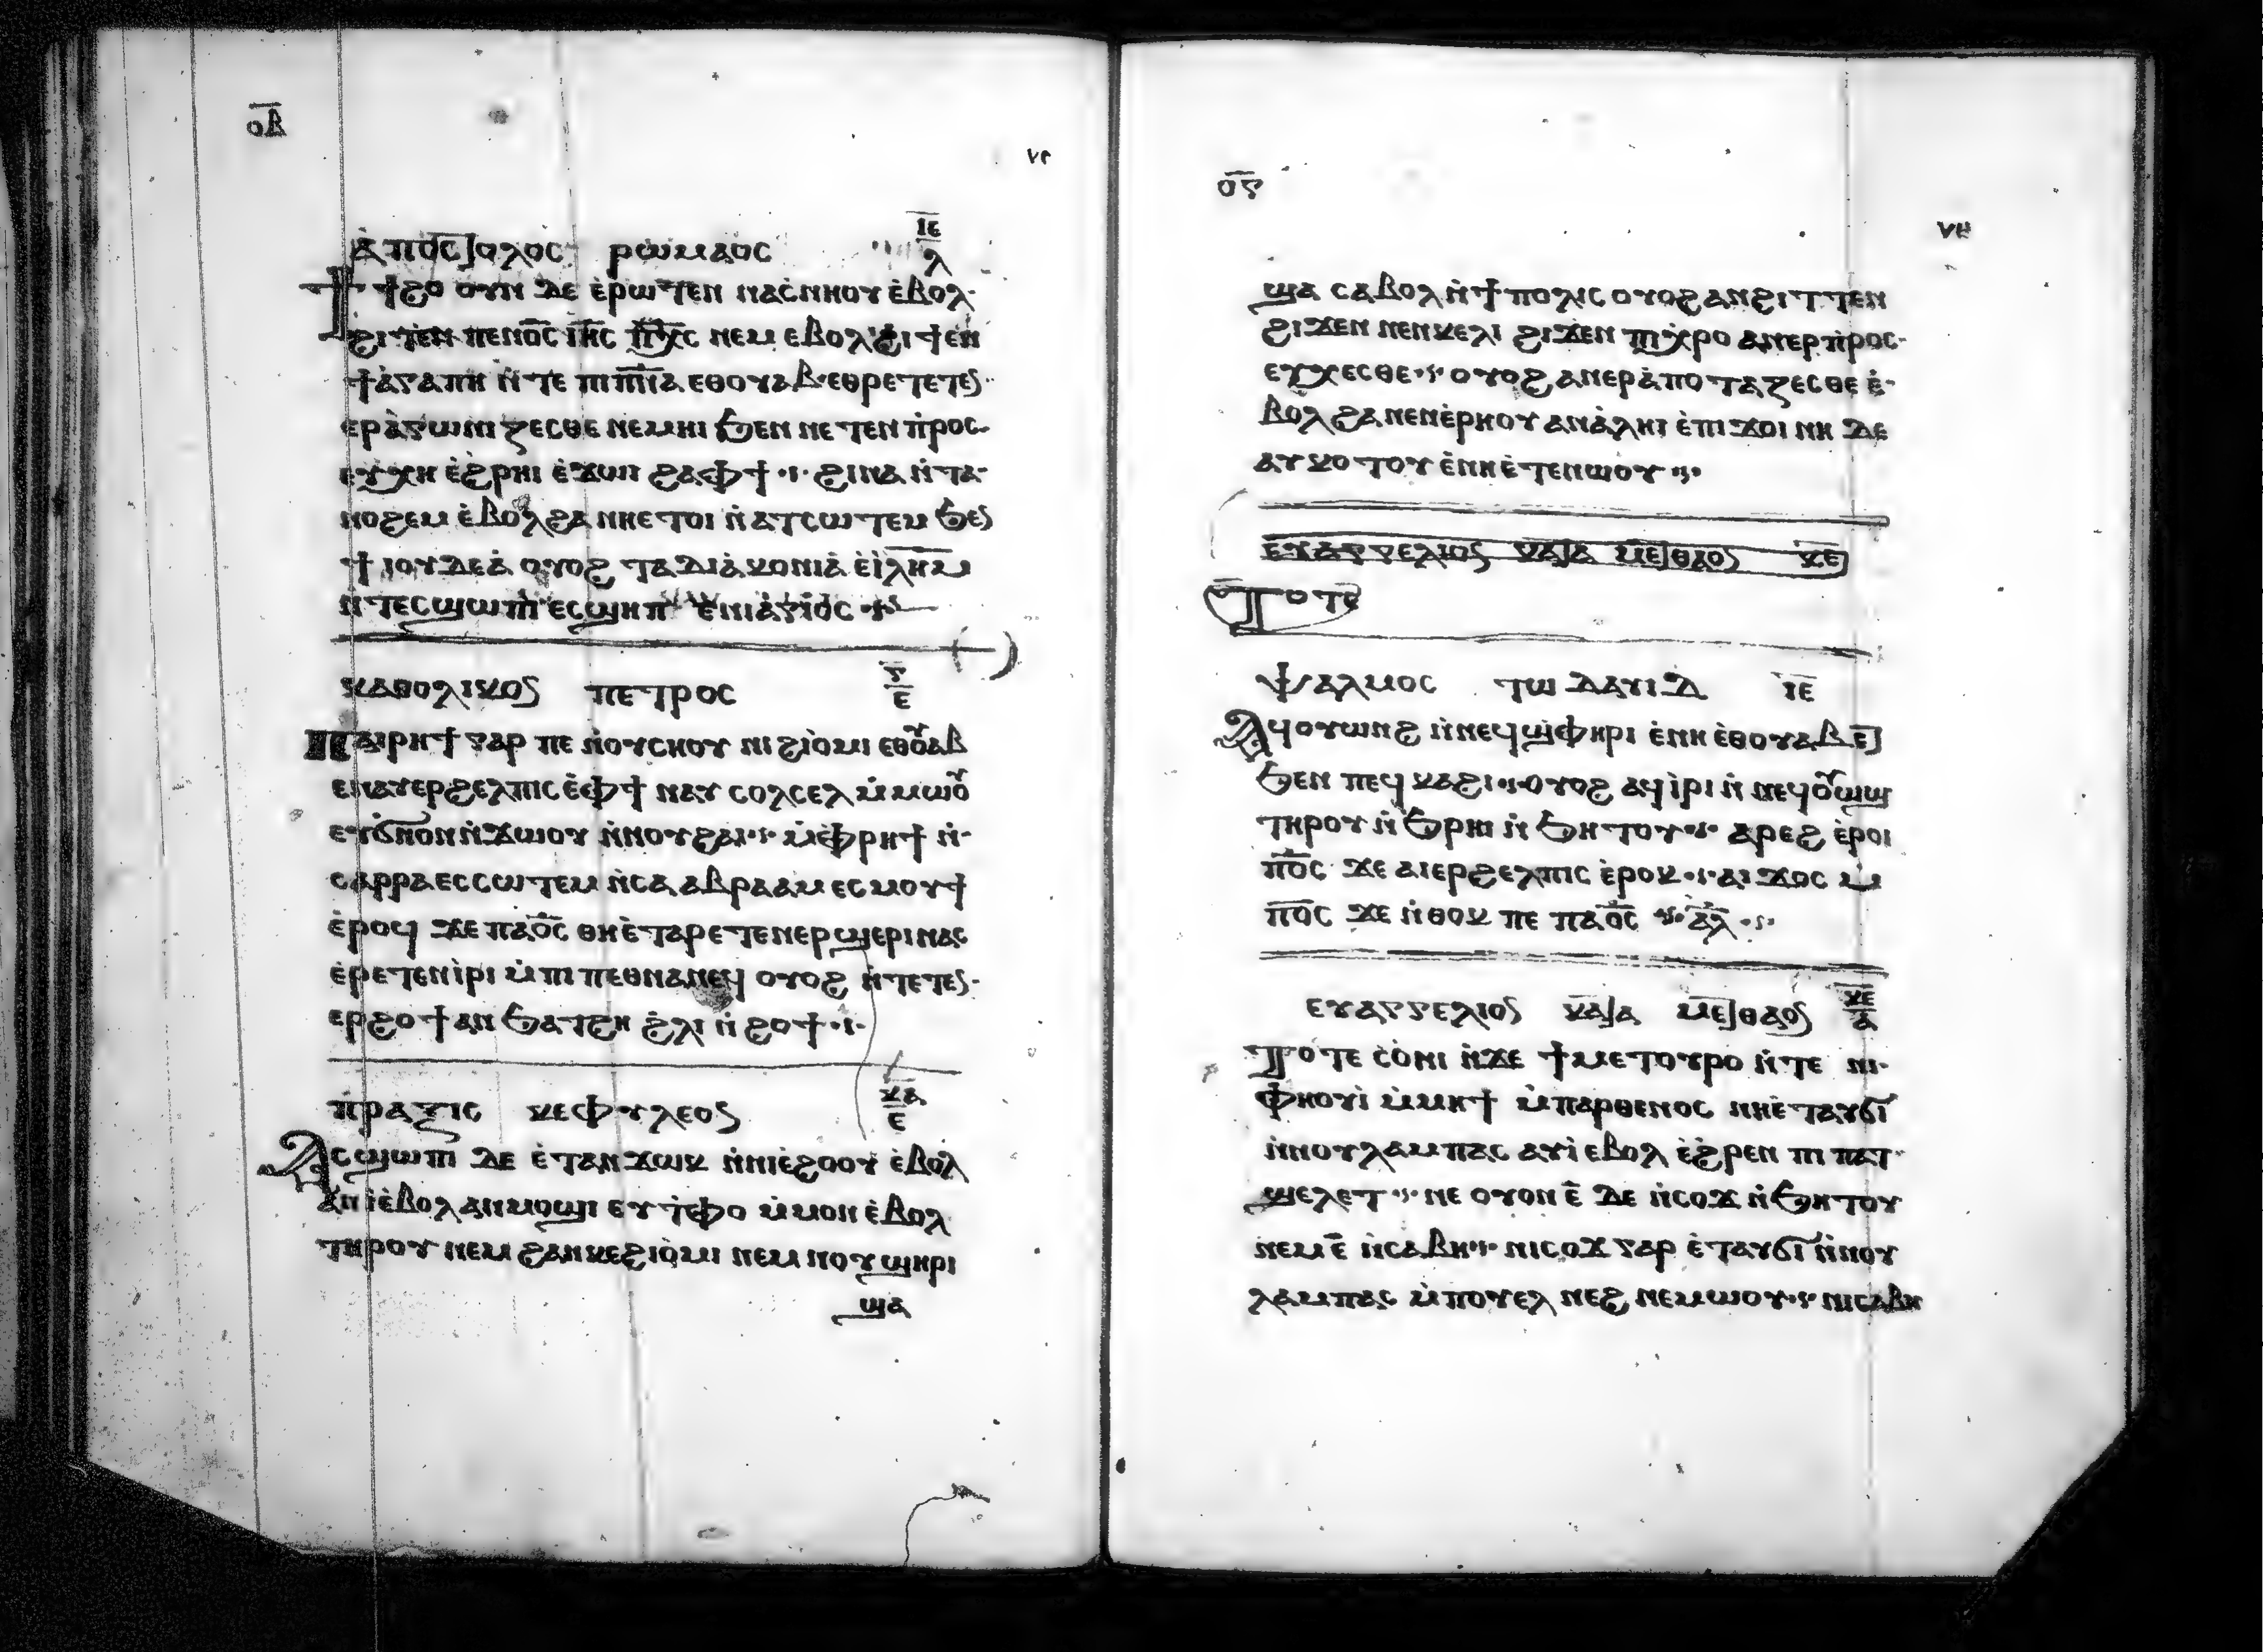 ⲟ̅ⲃ̅
ⲓ̅ⲉ̅
ⲗ
ⲁⲡⲟⲥⲧⲟⲗⲟⲥ ⲣⲱⲙⲁⲟⲥ
ϯϯϩⲟ ⲟⲩⲛ ⲇⲉ ⲉ̀ⲣⲱⲧⲉⲛ ⲛⲁⲥ̀ⲛⲏⲟⲩ ⲉ̀ⲃⲟⲗ
ϩⲓⲧⲉⲛ ⲡⲉⲛⲟ̅ⲥ̅ ⲓ̅ⲏ̅ⲥ̅ ⲡ̅ⲭ̅ⲥ̅ ⲛⲉⲙ ⲉⲃⲟⲗϩⲓⲧⲉⲛ
ϯⲁ̀ⲅⲁⲡⲏ ⲛ̀ⲧⲉ ⲡⲓⲡ̅ⲛ̅ⲁ ⲉⲑⲟⲩⲁⲃ ⲉⲑⲣⲉⲧⲉⲧⲉⲛ
ⲉⲣⲁ̀ⲅⲱⲛⲓⲍⲉⲥⲑⲉ ⲛⲉⲙⲏⲓ ϧⲉⲛ ⲛⲉⲧⲉⲛ ⲡ̀ⲣⲟⲥ
ⲉⲩⲭⲏ ⲉ̀ϩⲣⲏⲓ ⲉ̀ϫⲱⲓ ϩⲁⲫϯ ϩⲓⲛⲁ ⲛ̀ⲧⲁ
ⲛⲟϩⲉⲙ ⲉ̀ⲃⲟⲗϩⲁ ⲛⲏⲉⲧⲟⲓ ⲛ̀ⲁⲧⲥⲱⲧⲉⲙ ϧⲉⲛ
ϯⲓⲟⲩⲇⲉⲁ̀ ⲟⲩⲟϩ ⲧⲁⲇⲓⲁ̀ⲕⲟⲛⲓⲁ̀ ⲉ̀ⲓ̅ⲗ̅ⲏ̅ⲙ̅
ⲛ̀ⲧⲉⲥϣⲱⲡⲓ ⲉⲥϣⲏⲡ ⲉⲛⲓⲁ̀ⲅⲓⲟⲥ
ⲕⲁⲑⲟⲗⲓⲕⲟⲥ ⲡⲉⲧⲣⲟⲥ ⲅ̅ ⲉ̅
ⲡⲁⲓⲣⲏϯ ⲅⲁⲣ ⲡⲉ ⲛ̀ⲟⲩⲥⲏⲟⲩ ⲛⲓϩⲓⲟ̀ⲙⲓ ⲉⲑⲟⲩⲁⲃ
ⲉⲛⲁⲩⲉⲣϩⲉⲗⲡⲓⲥ ⲉ̀ⲫϯ ⲛⲁⲩ ⲥⲟⲗⲥⲉⲗ ⲙ̀ⲙⲱⲟⲩ
ⲉⲩϭⲛⲟⲛ ⲛ̀ϫⲱⲟⲩ ⲛ̀ⲛⲟⲩϩⲁⲓ ⲙ̀ⲫⲣⲏϯ ⲛ̀
ⲥⲁⲣⲣⲁ ⲉⲥⲥⲱⲧⲉⲙ ⲛ̀ⲥⲁ ⲁⲃⲣⲁⲁⲙ ⲉⲥⲙⲟⲩϯ
ⲉ̀ⲣⲟϥ ϫⲉ ⲡⲁⲟ̅ⲥ̅ ⲑⲏⲉ̀ⲧⲁⲣⲉⲧⲉⲛⲉⲣϣⲉⲣⲓ ⲛⲁⲥ
ⲉ̀ⲣⲉⲧⲉⲛⲓ̀ⲣⲓ ⲙ̀ⲡⲓⲡⲉⲑⲛⲁⲛⲉϥ ⲟⲩⲟϩ ⲛ̀ⲧⲉⲧⲉⲛ
ⲉⲣϩⲟϯ ⲁⲛ ϧⲁⲧϩⲏ ϩ̀ⲗⲓ ⲛ̀ϩⲟϯ
ⲡⲣⲁⲝⲓⲥ ⲕⲉⲫⲩⲗⲉⲟⲥ ⲕ̅ⲁ̅ ⲉ̅
ⲁⲥϣⲱⲡⲓ ⲇⲉ ⲉ̀ⲧⲁⲛϫⲱⲕ ⲛ̀ⲛⲓⲉ̀ϩⲟⲟⲩ ⲉ̀ⲃⲟⲗ
ⲁⲛⲓ̀ ⲉ̀ⲃⲟⲗ ⲁⲛⲙⲟϣⲓ ⲉⲩⲧ̀ⲫⲟ ⲙ̀ⲙⲟⲛ ⲉ̀ⲃⲟⲗ
ⲧⲏⲣⲟⲩ ⲛⲉⲙ ϩⲁⲛⲕⲉϩⲓⲟ̀ⲙⲓ ⲛⲉⲙ ⲛⲟⲩϣⲏⲣⲓ
ϣⲁ
ⲟ̅ⲅ̅
ϣⲁ ⲥⲁⲃⲟⲗ ⲛ̀ϯⲡⲟⲗⲓⲥ ⲟⲩⲟϩ ⲁⲛϩⲓⲧⲧⲉⲛ
ϩⲓϫⲉⲛ ⲛⲉⲛⲕⲉⲗⲓ ϩⲓϫⲉⲛ ⲡⲓⲭ̀ⲣⲟ ⲁⲛⲉⲣⲡ̀ⲣⲟⲥ
ⲉⲩⲭⲉⲥⲑⲉ ⲟⲩⲟϩ ⲁⲛⲉⲣⲁ̀ⲡⲟⲧⲁⲍⲉⲥⲑⲉ ⲉ̀
ⲃⲟⲗϩⲁ ⲛⲉⲛⲉ̀ⲣⲏⲟⲩ ⲁⲛⲁ̀ⲗⲏⲓ ⲉ̀ⲡⲓϫⲟⲓ ⲛⲏ ⲇⲉ
ⲁⲩⲕⲟⲧⲟⲩ ⲉ̀ⲛⲏⲉ̀ⲧⲉⲛⲱⲟⲩ
ⲉⲩⲁⲅⲅⲉⲗⲓⲟⲥ ⲕⲁⲧⲁ ⲙⲉⲧⲑⲁⲟⲥ ⲕ̅ⲉ̅
ⲧⲟⲧⲉ
ⲯⲁⲗⲙⲟⲥ ⲧⲱ ⲇⲁⲩⲓⲇ ⲓ̅ⲉ̅
ⲁϥⲟⲩⲱⲛϩ ⲛ̀ⲛⲉϥϣⲫⲏⲣⲓ ⲉ̀ⲛⲏ ⲉ̀ⲑⲟⲩⲁⲃ ⲉⲧ
ϧⲉⲛ ⲡⲉϥⲕⲁϩⲓ ⲟⲩⲟϩ ⲁϥⲓ̀ⲣⲓ ⲛ̀ⲛⲉϥⲟⲩⲱϣ
ⲧⲏⲣⲟⲩ ⲛ̀ϧⲣⲏⲓ ⲛ̀ϧⲏⲧⲟⲩ ⲁⲣⲉϩ ⲉ̀ⲣⲟⲓ
ⲡ̅ⲟ̅ⲥ̅ ϫⲉ ⲁⲓⲉⲣϩⲉⲗⲡⲓⲥ ⲉ̀ⲣⲟⲕ ⲁⲓϫⲟⲥ ⲙ̀
ⲡ̅ⲟ̅ⲥ̅ ϫⲉ ⲛ̀ⲑⲟⲕ ⲡⲉ ⲡⲁⲟ̅ⲥ̅ ⲁ̅ⲗ̅
ⲉⲩⲁⲅⲅⲉⲗⲓⲟⲥ ⲕⲁⲧⲁ ⲙⲉⲧⲑⲁⲟⲥ ⲕ̅ⲉ̅ ⲁ̅
ⲧⲟⲧⲉ ⲥ̀ⲟ̀ⲛⲓ ⲛ̀ϫⲉ ϯⲙⲉⲧⲟⲩⲣⲟ ⲛ̀ⲧⲉ ⲛⲓ
ⲫⲏⲟⲩⲓ̀ ⲙ̀ⲙⲏϯ ⲙ̀ⲡⲁⲣⲑⲉⲛⲟⲥ ⲛⲏⲉ̀ⲧⲁⲩϭⲓ
ⲛ̀ⲛⲟⲩⲗⲁⲙⲡⲁⲥ ⲁⲩⲓ̀ ⲉⲃⲟⲗ ⲉ̀ϩ̀ⲣⲉⲛ ⲡⲓⲡⲁⲧ
ϣⲉⲗⲉⲧ ⲛⲉ ⲟⲩⲟⲛ ⲉ̅ ⲇⲉ ⲛ̀ⲥⲟϫ ⲛ̀ϧⲏⲧⲟⲩ
ⲛⲉⲙ ⲉ̅ ⲛ̀ⲥⲁⲃⲏ ⲛⲓⲥⲟϫ ⲅⲁⲣ ⲉ̀ⲧⲁⲩϭⲓ ⲛ̀ⲛⲟⲩ
ⲗⲁⲙⲡⲁⲥ ⲙ̀ⲡⲟⲩⲉⲗ ⲛⲉϩ ⲛⲉⲙⲱⲟⲩ ⲛⲓⲥⲁⲃⲏ